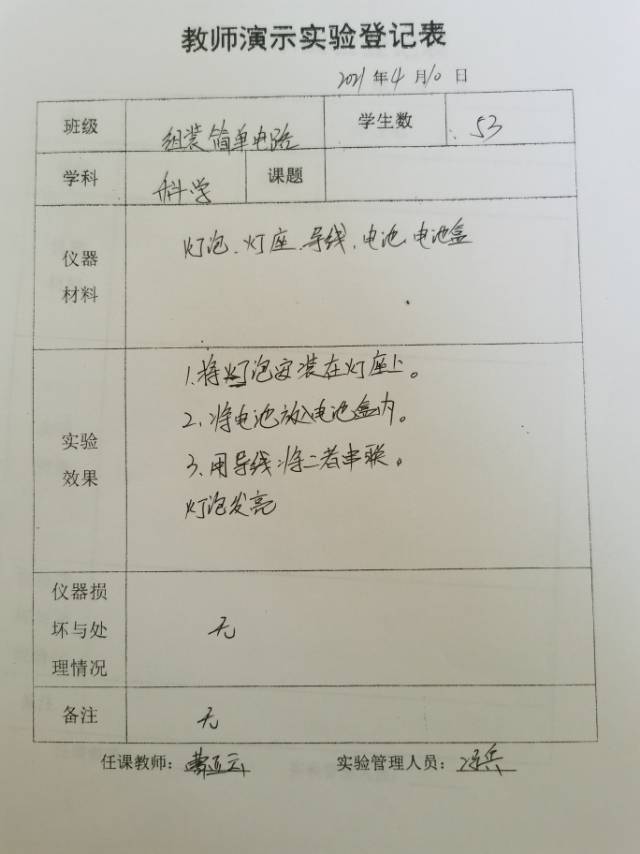 教师演示实验登记表
2021 年 4 月 10 日
班级 组装简单电路 学生数 53
学科 科学 课题
仪器材料 灯泡、灯座、导线、电池、电池盒
实验效果
1.将灯泡安装在灯座上。
2、将电池放入电池盒内。
3、用导线将二者串联。
灯泡发亮
仪器损坏与处理情况 无
备注 无
任课教师： 实验管理人员：